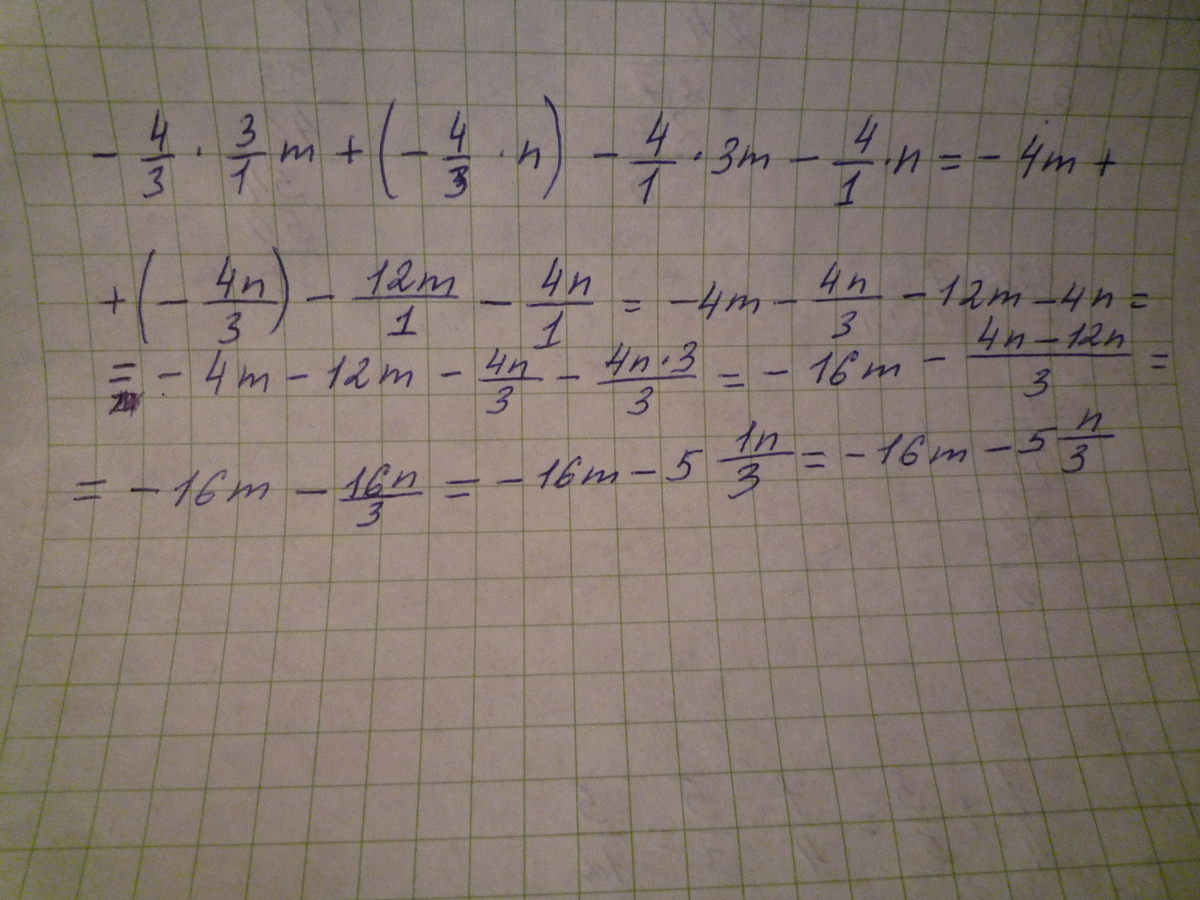 - 4/3 · 3/1 m + (- 4/3 · n) - 4/1 · 3m - 4/1 · n = - 4m +
+ (- 4n/3) - 12m/1 - 4n/1 = -4m - 4n/3 - 12m - 4n =
= - 4m - 12m - 4n/3 - 4n·3/3 = - 16m - 4n-12n/3 =
= - 16m - 16n/3 = - 16m - 5 1n/3 = - 16m - 5 n/3